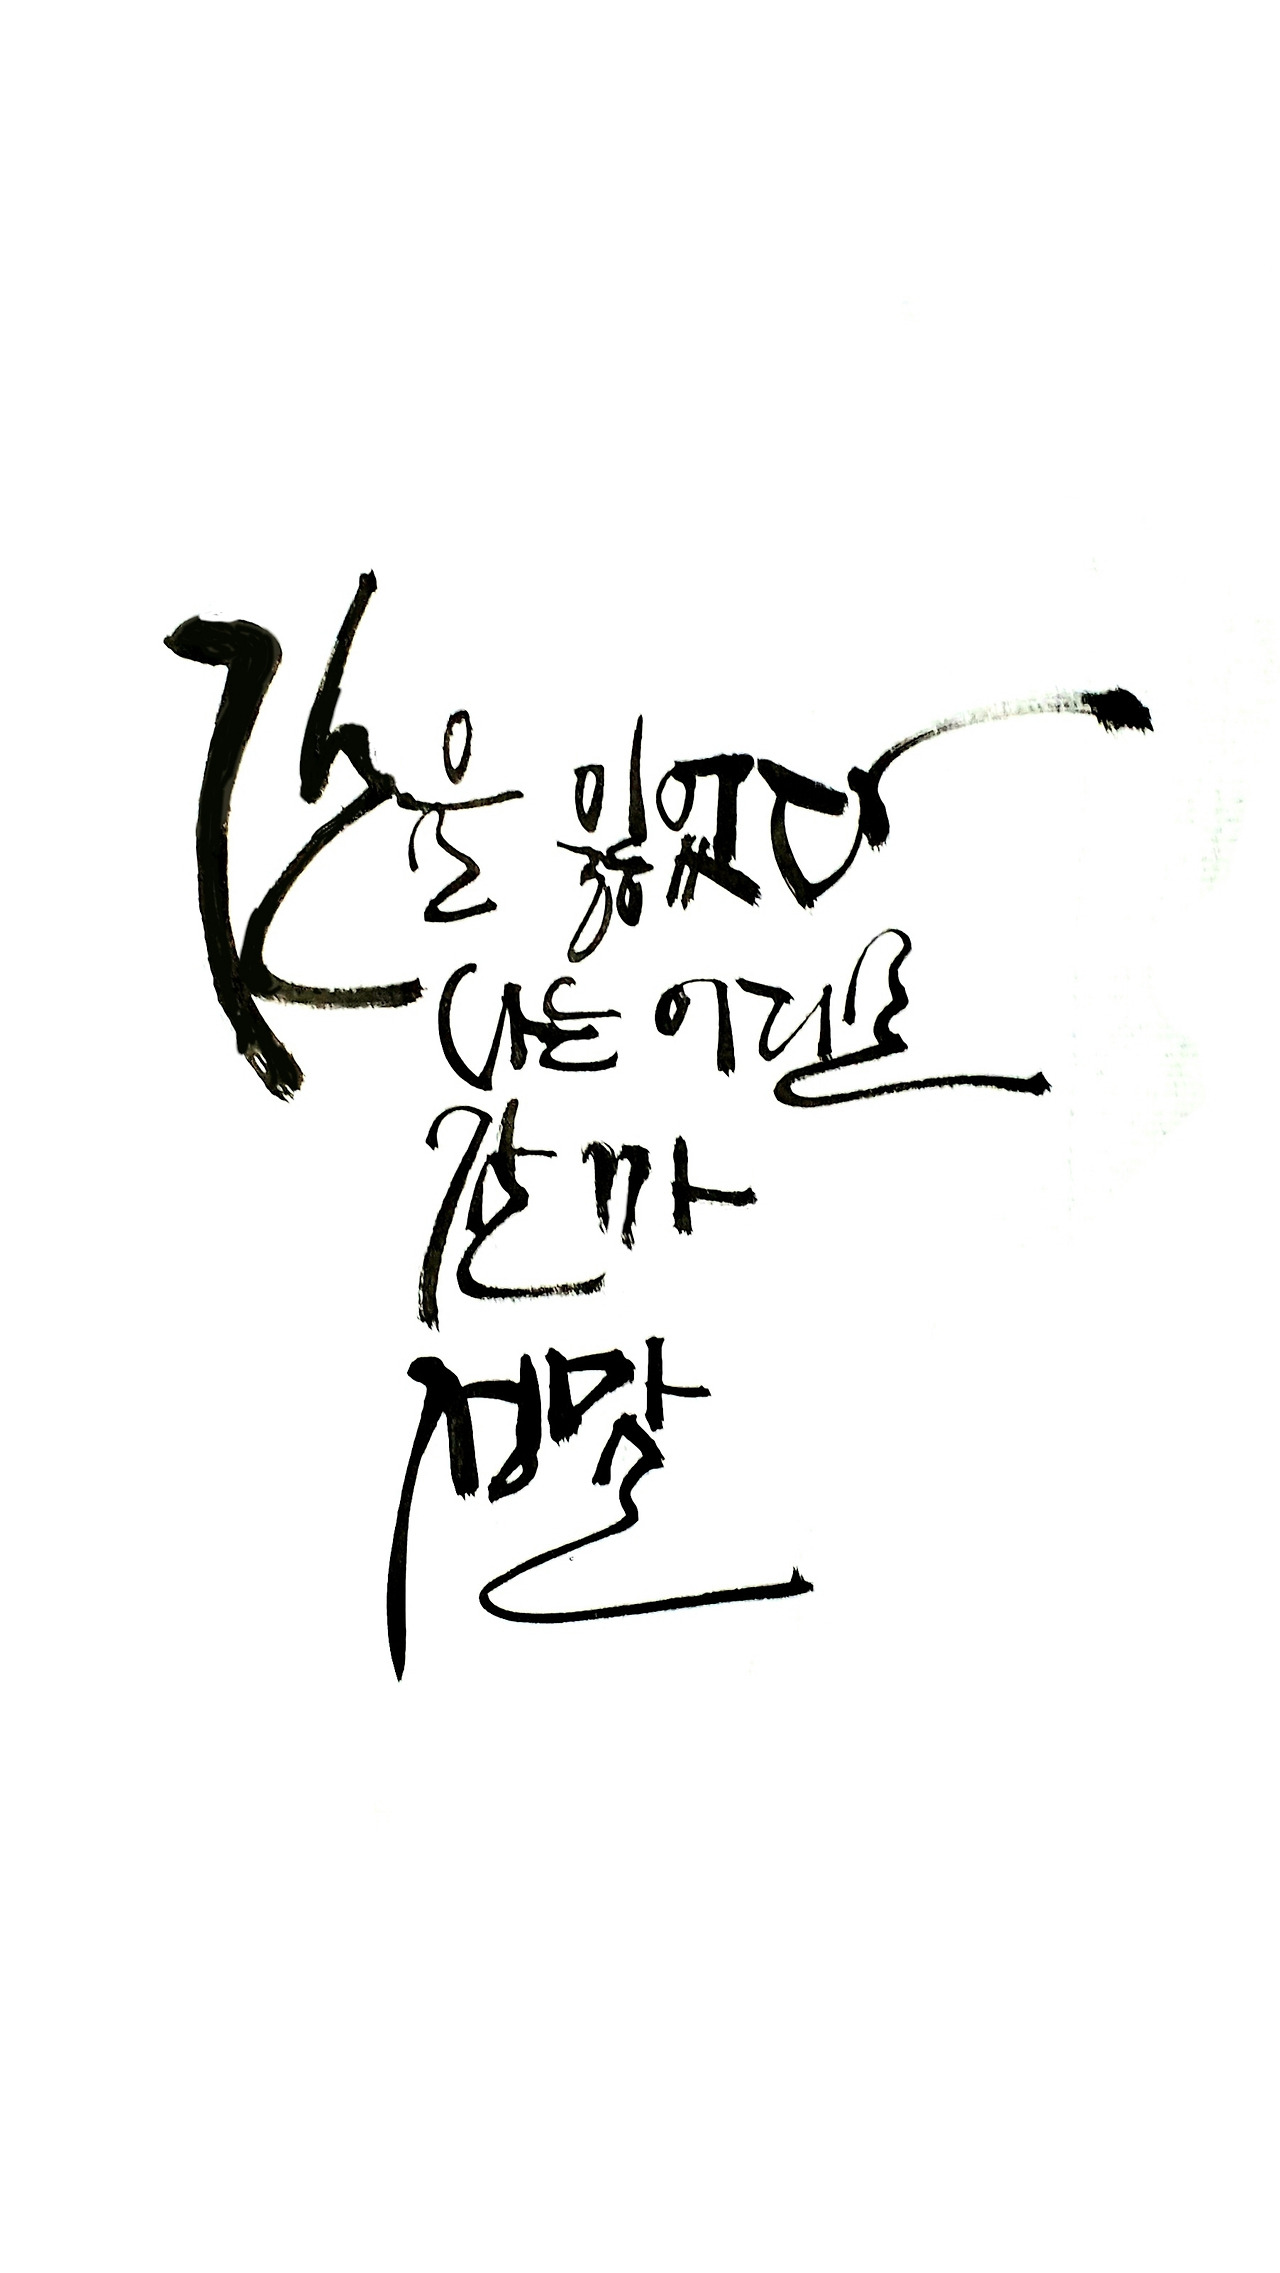 길을 잃었다
나는 어디로
갈까
정말